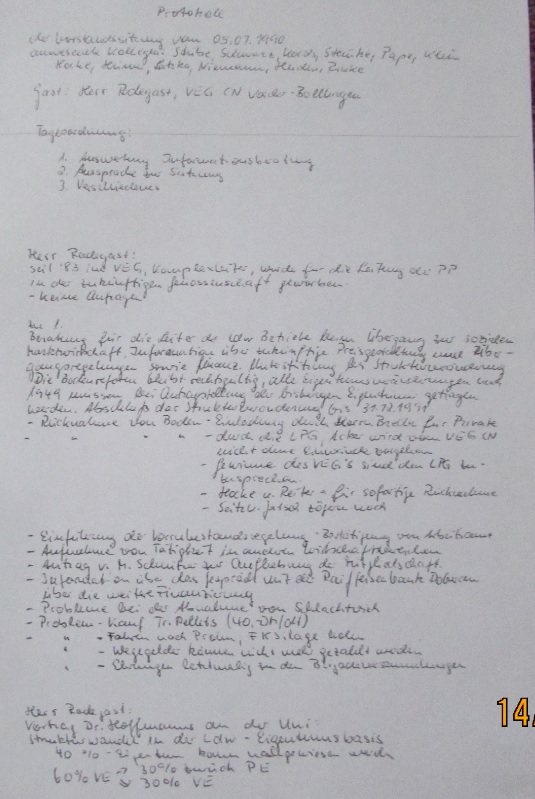 Protokoll
der Vorstandssitzung vom 05.07.1990
anwesende Kollegen: Stübe, Schwarz, Pape, Klein
Niemann,
Gast: Herr Radegast, VEG CN
Tagesordnung:
1. Auswertung Informationsberatung
2. Aussprache zur Satzung
3. Verschiedenes
Herr Radegast:
seit '83 im VEG, Komplexleiter, wurde für die Leitung der PP
in der zukünftigen Genossenschaft geworben.
- Keine Anfragen
Zu 1.
Beratung für die Leiter der Ldw Betriebe beim Übergang zur sozialen
Marktwirtschaft, Information über zukünftige Preisgestaltung und Über-
gangsregelungen sowie finanz. Unterstützung bei Strukturveränderung
Die Bodenreform bleibt rechtsgültig, alle Eigentumsveränderungen nach
1949 müssen bei Antragstellung der bisherigen Eigentümer getragen
werden. Abschluß der Strukturveränderung bis 31.12.1991
- Rücknahme von Boden - Einladung durch Herrn für Private
- " " " - durch die LPG, Acker wird vom VEG CN
nicht ohne Einwände
- Gewinne des VEG's sind den LPG zu-
zusprechen.
- u. Reiter - für sofortige Rücknahme
- zögern noch
- Einführung der - Bestätigung vom Arbeitsamt
- Aufnahme von Tätigkeit in anderen Wirtschaftsbereichen
- Antrag v. M. zur Aufhebung der Mitgliedschaft.
- Information über das Gespräch mit der Raiffeisenbank Doberan
über die weitere Finanzierung
- Probleme bei der Abnahme von Schlachtvieh
- Problem - Kauf Tr. Pellets (40,- DM/dt)
- " - Fahren nach FKSilage holen
" - Wegegelder können nicht mehr gezahlt werden
" - Ehrungen letztmalig zu den Brigadeversammlungen
Herr Radegast:
Vortrag Dr. Hoffmanns an der Uni:
Strukturwandel in der Ldw - Eigentumsbasis
40 % - Eigentum kann nachgewiesen werden
60% VE → 30% zurück PE
↘ 30% VE
14